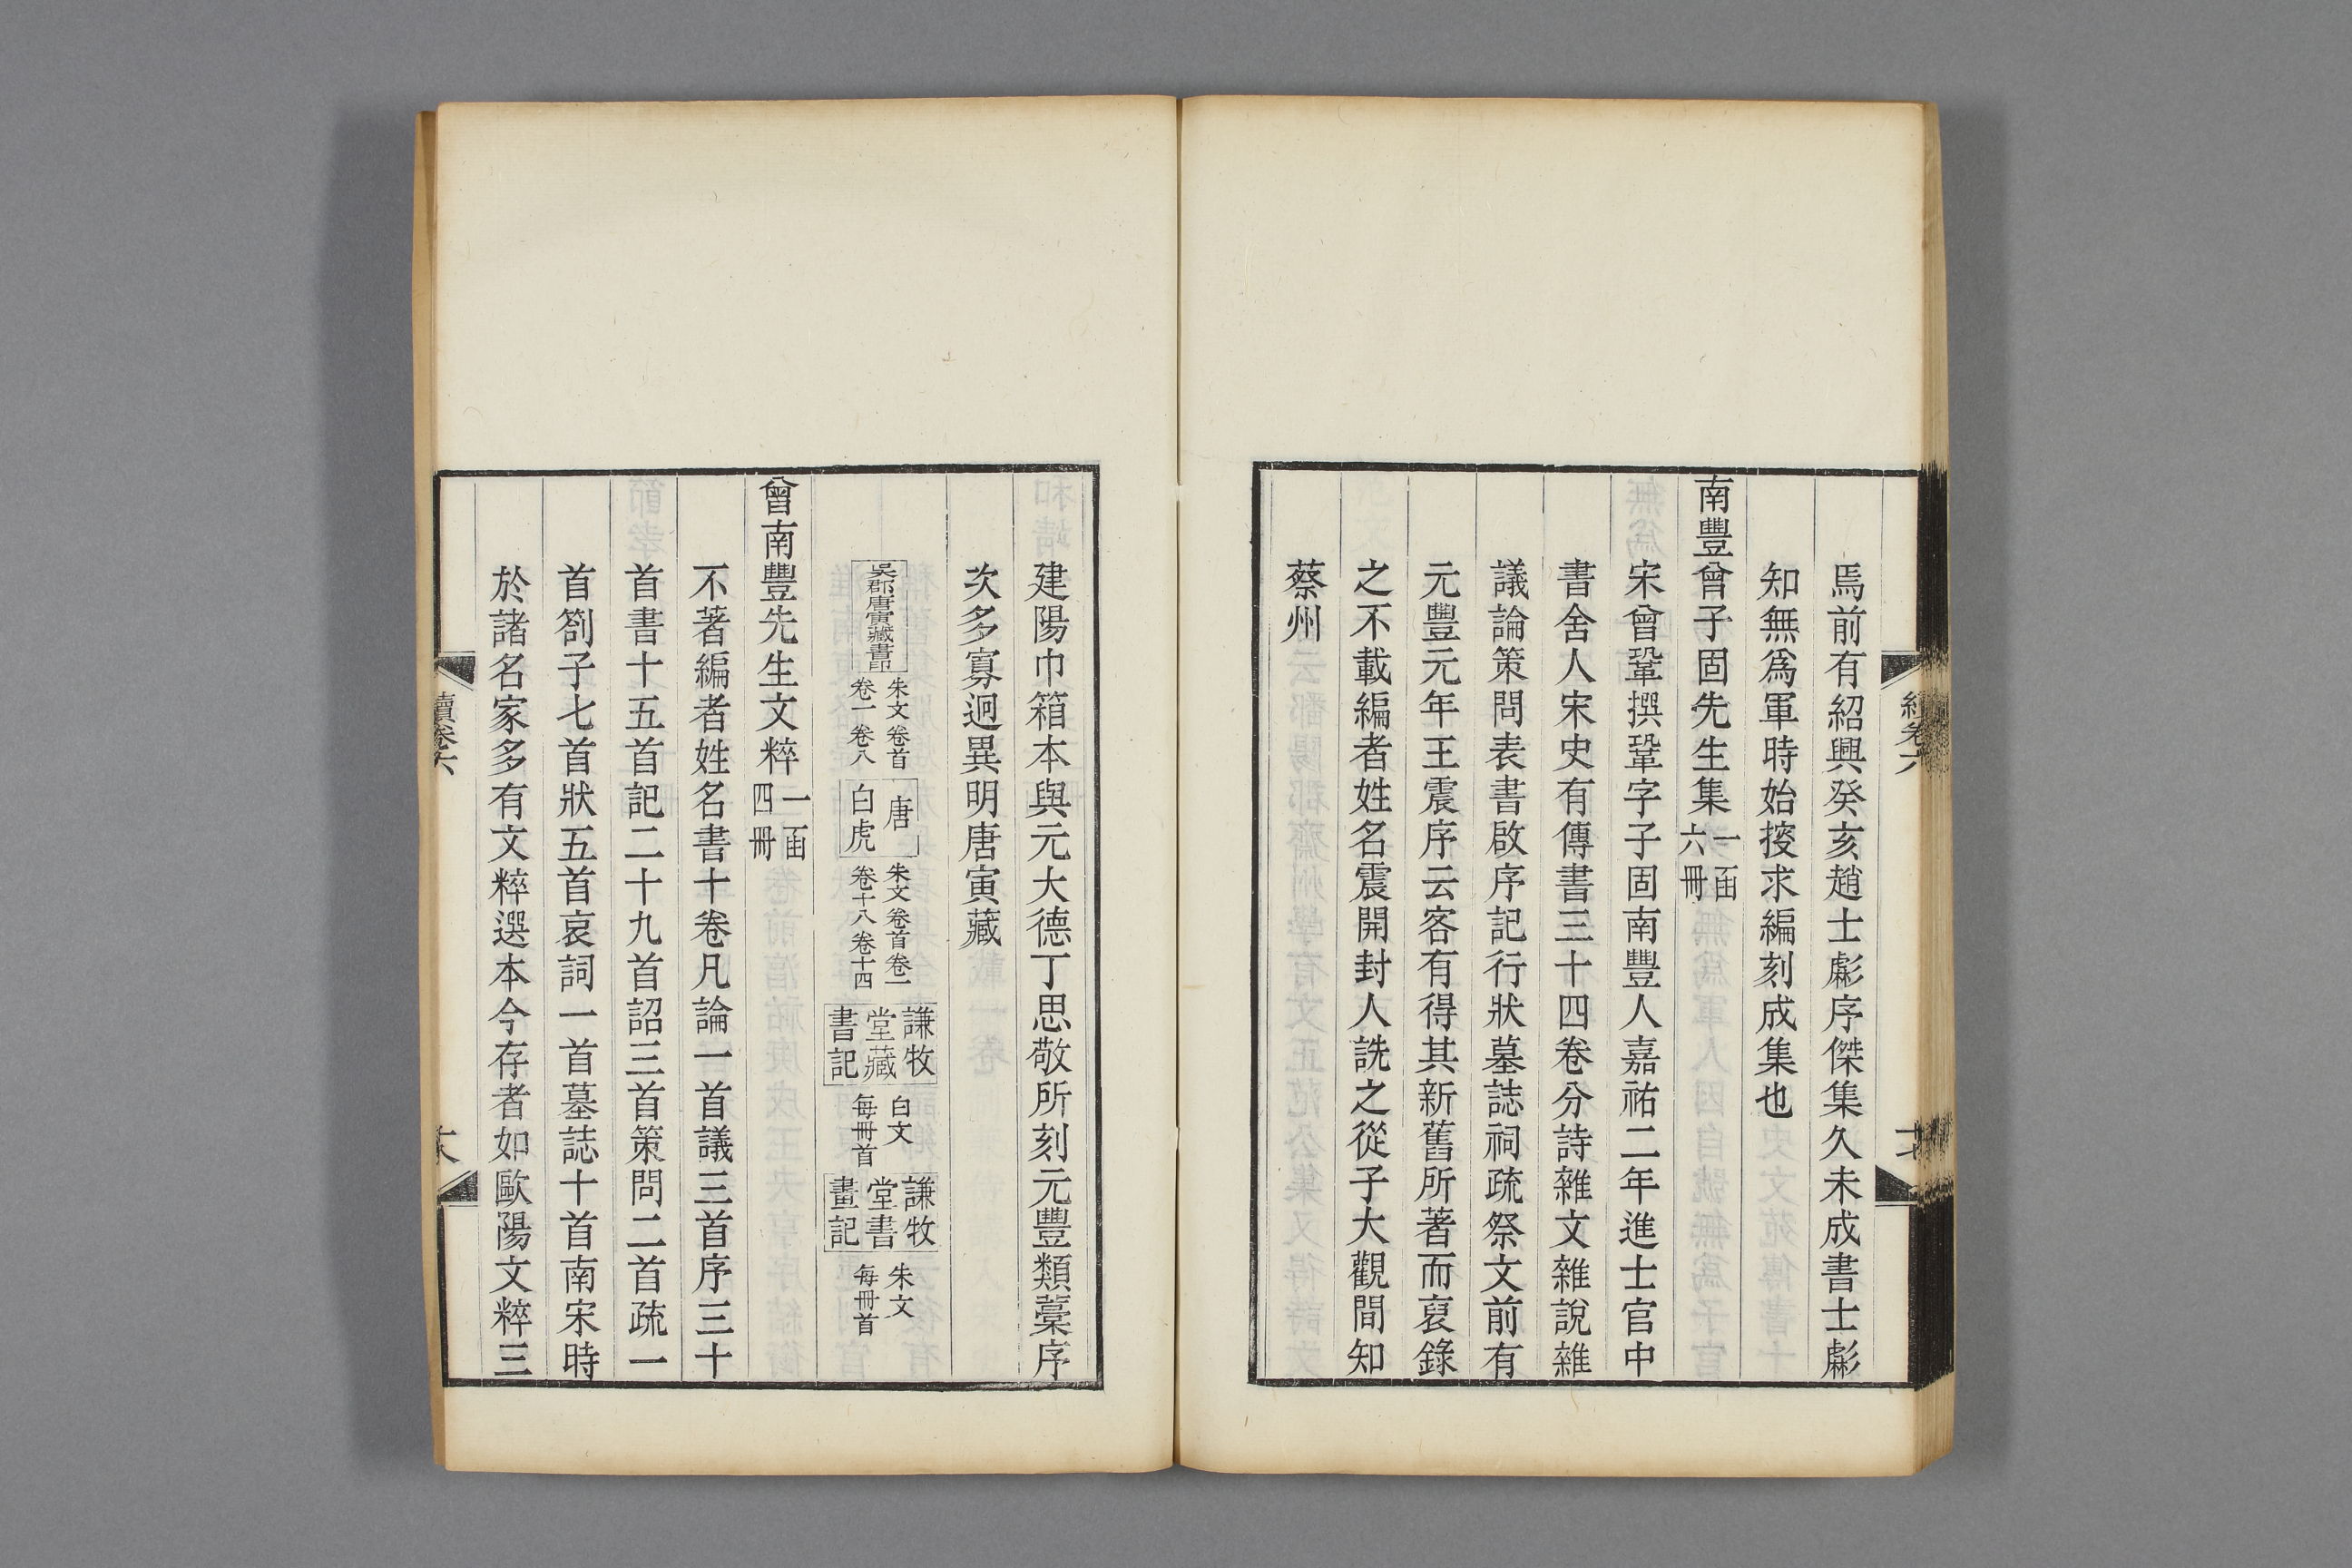 焉前有紹興癸亥趙士彪序傑集久未成書士彪
知無爲軍時始搜求編刻成集也
南豐曾子固先生集一函六冊
宋曾鞏撰鞏字子固南豐人嘉祐二年進士官中
書舍人宋史有傳書三十四卷分詩雜文雜說雜
議論策問表書啟序記行狀墓誌祠疏祭文前有
元豐元年王震序云客有得其新舊所著而裒錄
之不載編者姓名震開封人詵之從子大觀間知
蔡州
續卷六
十七
建陽巾箱本與元大德丁思敬所刻元豐類藁序
次多寡迥異明唐寅藏
吳郡唐寅藏書印
朱文卷首
卷一卷八
唐白虎
朱文卷首卷一
卷十八卷十四
謙牧堂藏書記
白文
每冊首
謙牧堂書畫記
朱文
每冊首
曾南豐先生文粹一函四冊
不著編者姓名書十卷凡論一首議三首序三十
首書十五首記二十九首詔三首策問二首疏一
首劄子七首狀五首哀詞一首墓誌十首南宋時
於諸名家多有文粹選本今存者如歐陽文粹三
續卷六